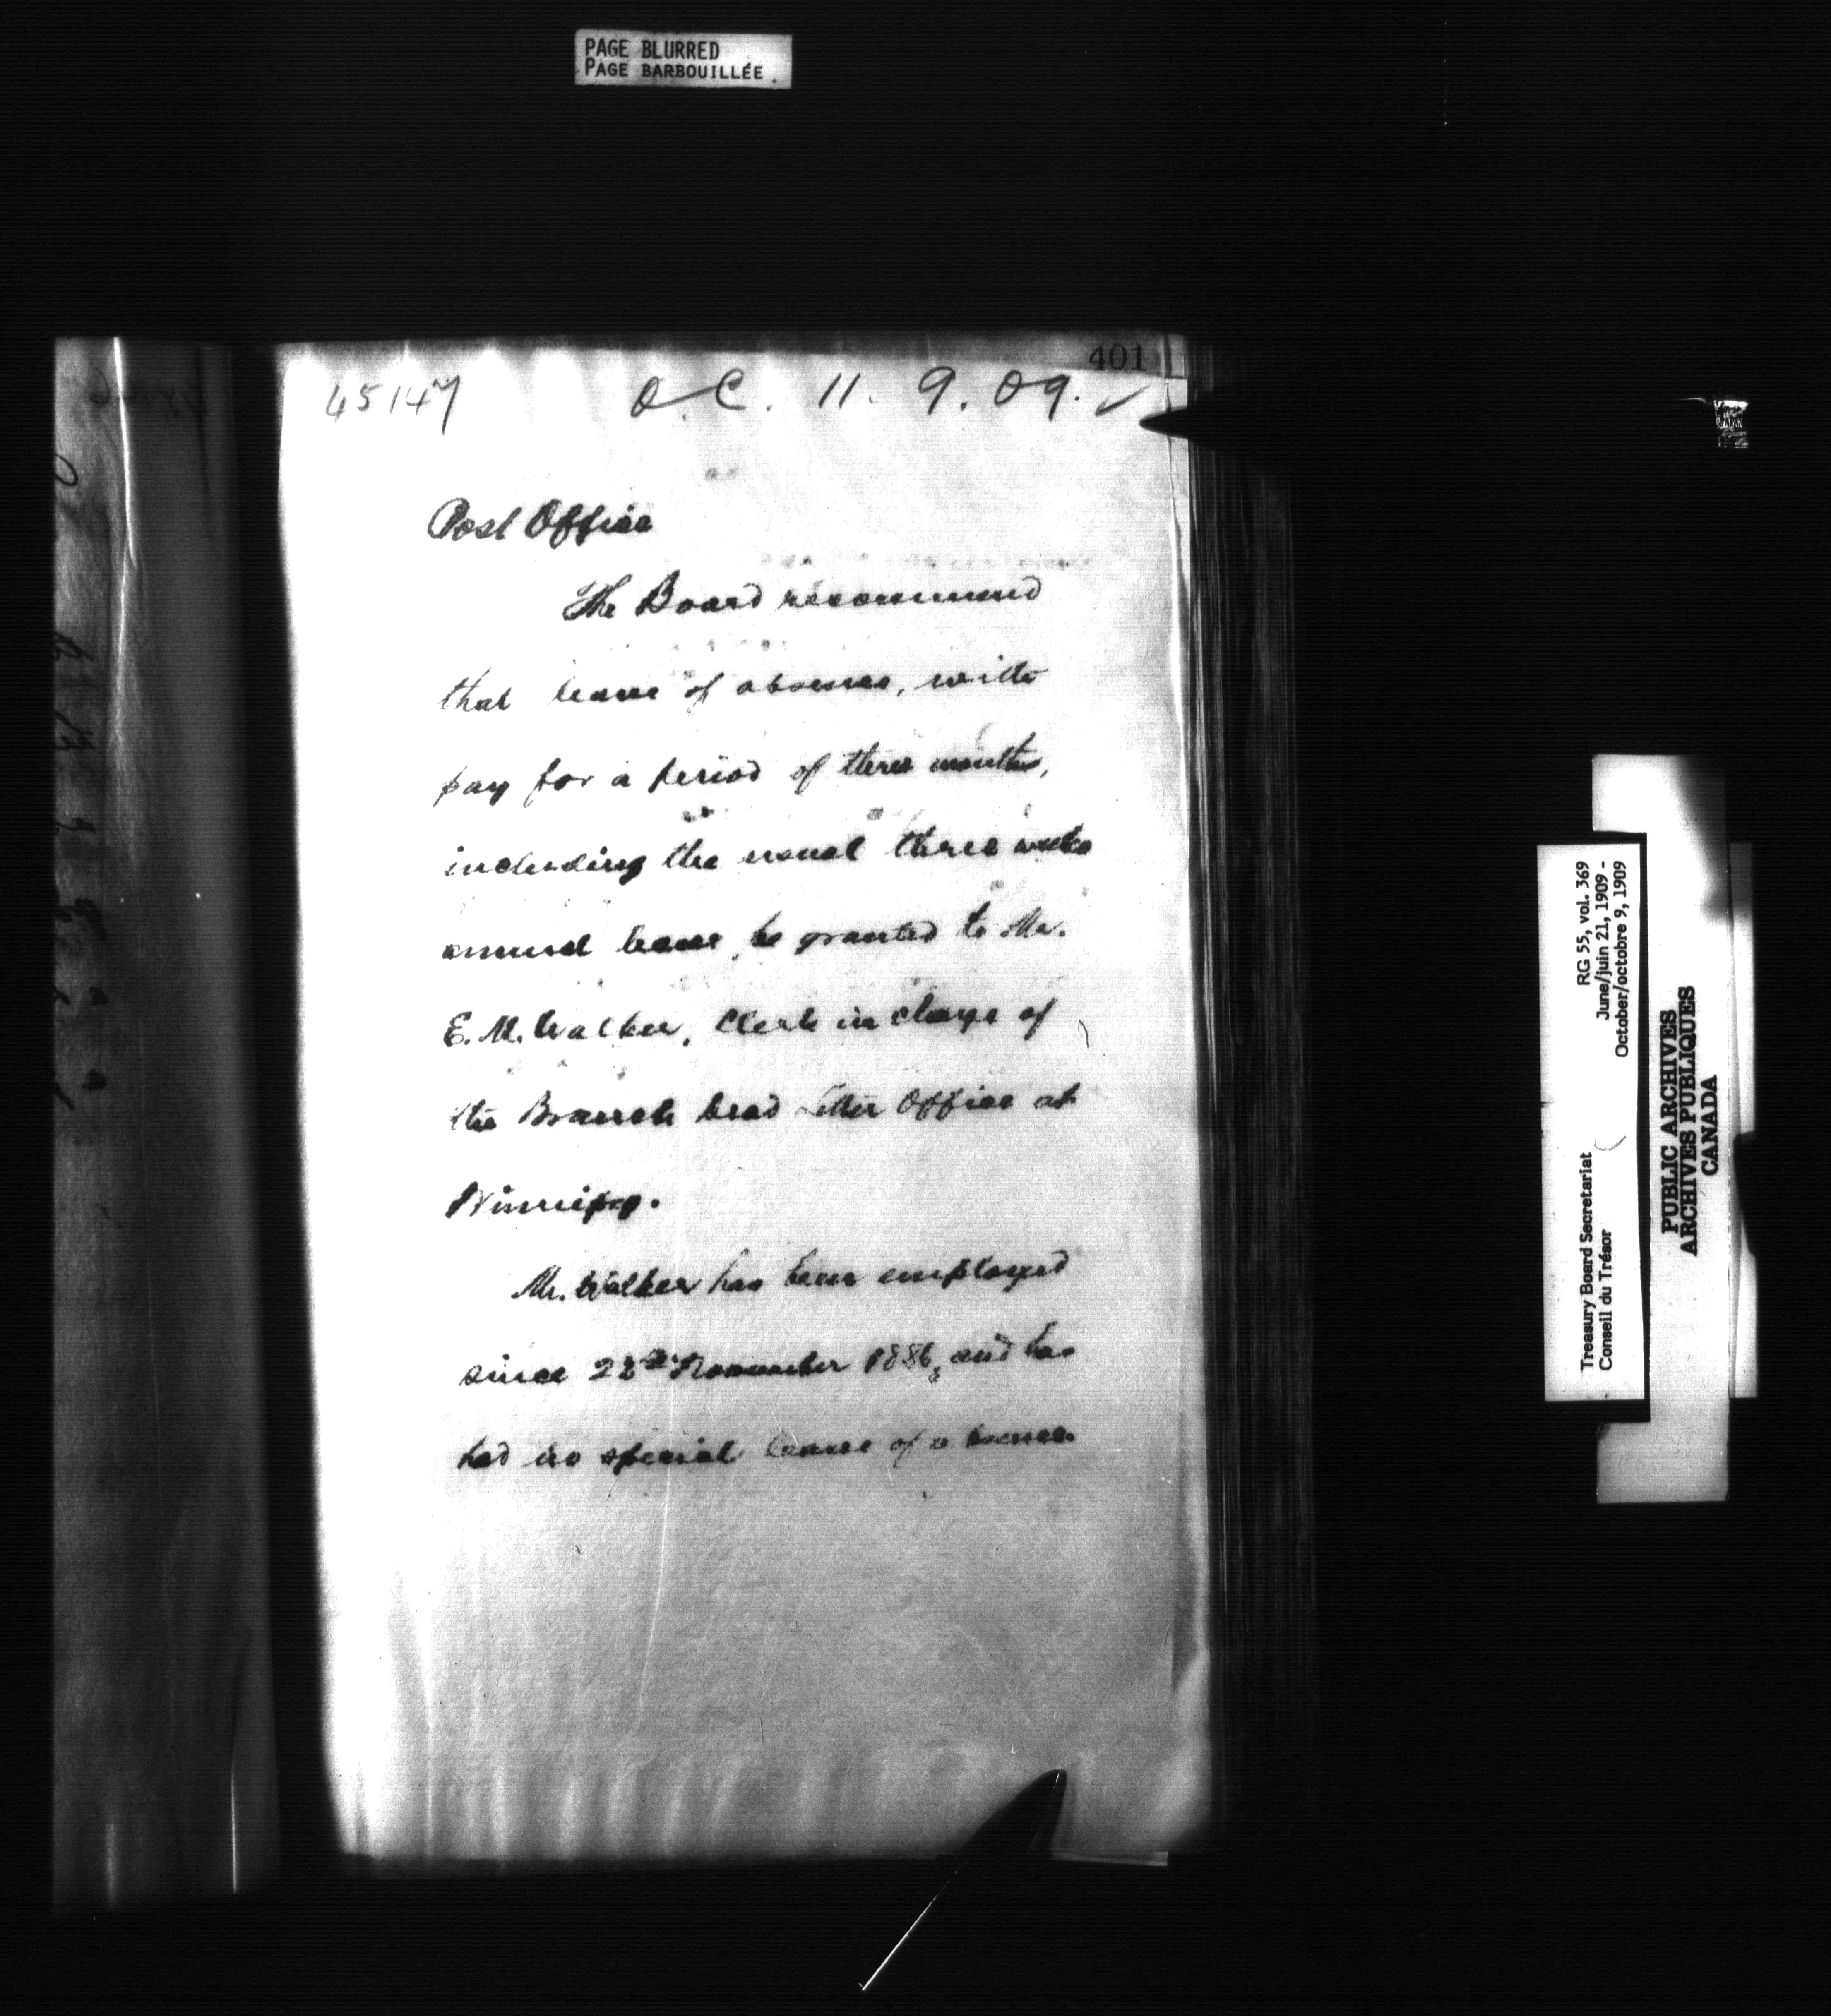 PAGE BLURRED
PAGE BARBOUILLÉE
401
45147 O.C. 11. 9. 09. ✓
Post Office
The Board recommend
that leave of absence, with
pay for a period of three months,
including the usual three weeks
annual leave, be granted to Mr.
E. M. Walker, Clerk in charge of
the Branch Dead Letter Office at
Winnipeg.
Mr. Walker has been employed
since 22nd November 1886, and has
had no special leave of absence.
Treasury Board Secretariat RG 55, vol. 369
Conseil du Trésor June/juin 21, 1909 -
October/octobre 9, 1909
PUBLIC ARCHIVES
ARCHIVES PUBLIQUES
CANADA